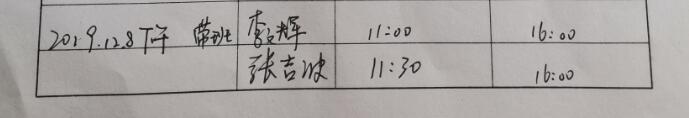 2019.12.8 下午 带班 李文辉 11:00 16:00
张吉波 11:30 16:00